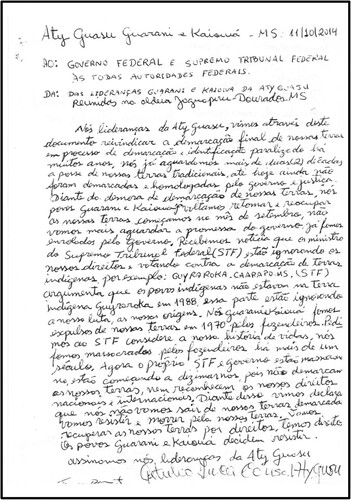 Aty Guasu Guarani e Kaiowá - MS. 11/10/2014
AO: GOVERNO FEDERAL E SUPREMO TRIBUNAL FEDERAL
ÀS TODAS AUTORIDADES FEDERAIS.
DA: DAS LIDERANÇAS GUARANI E KAIOVA DA ATY GUASU
Reunidos na aldeia Jaguapiru-Dourados-MS
Nós lideranças da Aty Guasu, vimos através deste
documento reivindicar a demarcação final de nossas terras
em processo de demarcação e identificação paralizado há
muitos anos, nós já aguardamos mais de duas(2) décadas
a posse de nossas terras tradicionais, até hoje ainda não
foram demarcadas e homologadas pelo governo e justiça
Diante do demora de demarcação de nossas terras, nós
povos Guarani e Kaiowa voltemos retomar e reocupar
as nossas terras começamos no mês de setembro, não
vamos mais aguardar a promessa do governo já fomos
enrolados pelo Governo. Recebemos notícia que os ministro
do Supremo Tribunal Federal (STF) estão ignorando os
nossos direitos e votando contra a demarcação de terras
indígenas por exemplo: GUYRAROKA-CAARAPO.MS. (STF)
argumenta que os povos indígenas não estavam na terra
Indígena Guyraroka em 1988, essa parte estão ignorando
a nossa luta, as nossas origens. Nós Guarani Kaiowá fomos
expulsos de nossas terras em 1970 pelos fazendeiros. Pedi
mos ao STF considere a nossa história de vidas, nós
fomos massacrados pelos fazendeiros há mais de um
século, Agora o próprio STF e Governo estão
estão começando a dizimar nós pois não demarcam
as nossas terras, nem reconhecem os nossos direitos
nacionais e internacionais, Diante disso vimos declara
que nós não vamos sair de nossas terras demarcada
vamos resistir e morrer pela nossas terras. Vamos
recuperar as nossas terras por direitos, temos direito
Os povos Guarani e Kaiowá decidem resistir.
assinamos nós lideranças da Aty Guasu